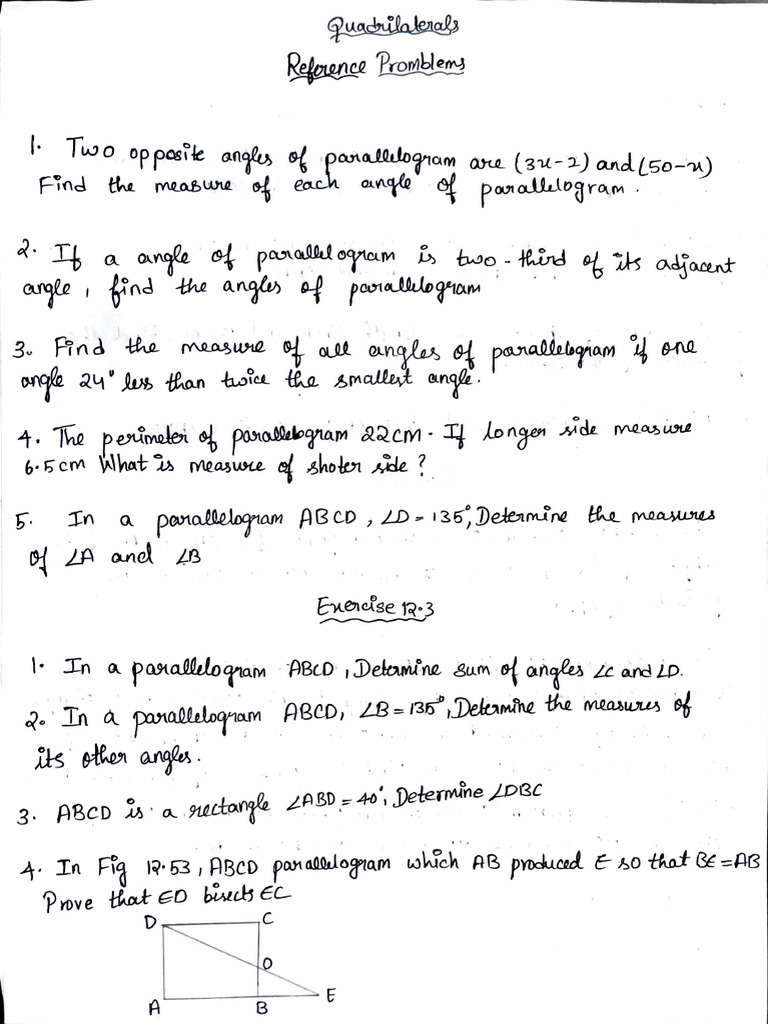 Quadrilaterals
Reference Promblems
1. Two opposite angles of parallelogram are (3x-2) and (50-x)
Find the measure of each angle of parallelogram.
2. If a angle of parallelogram is two-third of its adjacent
angle, find the angles of parallelogram
3. Find the measure of all angles of parallelogram if one
angle 24° less than twice the smallest angle.
4. The perimeter of parallelogram 22cm. If longer side measure
6.5cm What is measure of shoter side?
5. In a parallelogram ABCD, ∠D = 135°, Determine the measures
of ∠A and ∠B
Exercise 12.3
1. In a parallelogram ABCD, Determine sum of angles ∠C and ∠D.
2. In a parallelogram ABCD, ∠B = 135°, Determine the measures of
its other angles.
3. ABCD is a rectangle ∠ABD = 40°, Determine ∠DBC
4. In Fig 12.53, ABCD parallelogram which AB produced E so that BE = AB
Prove that ED bisects EC
D C
O
A B E